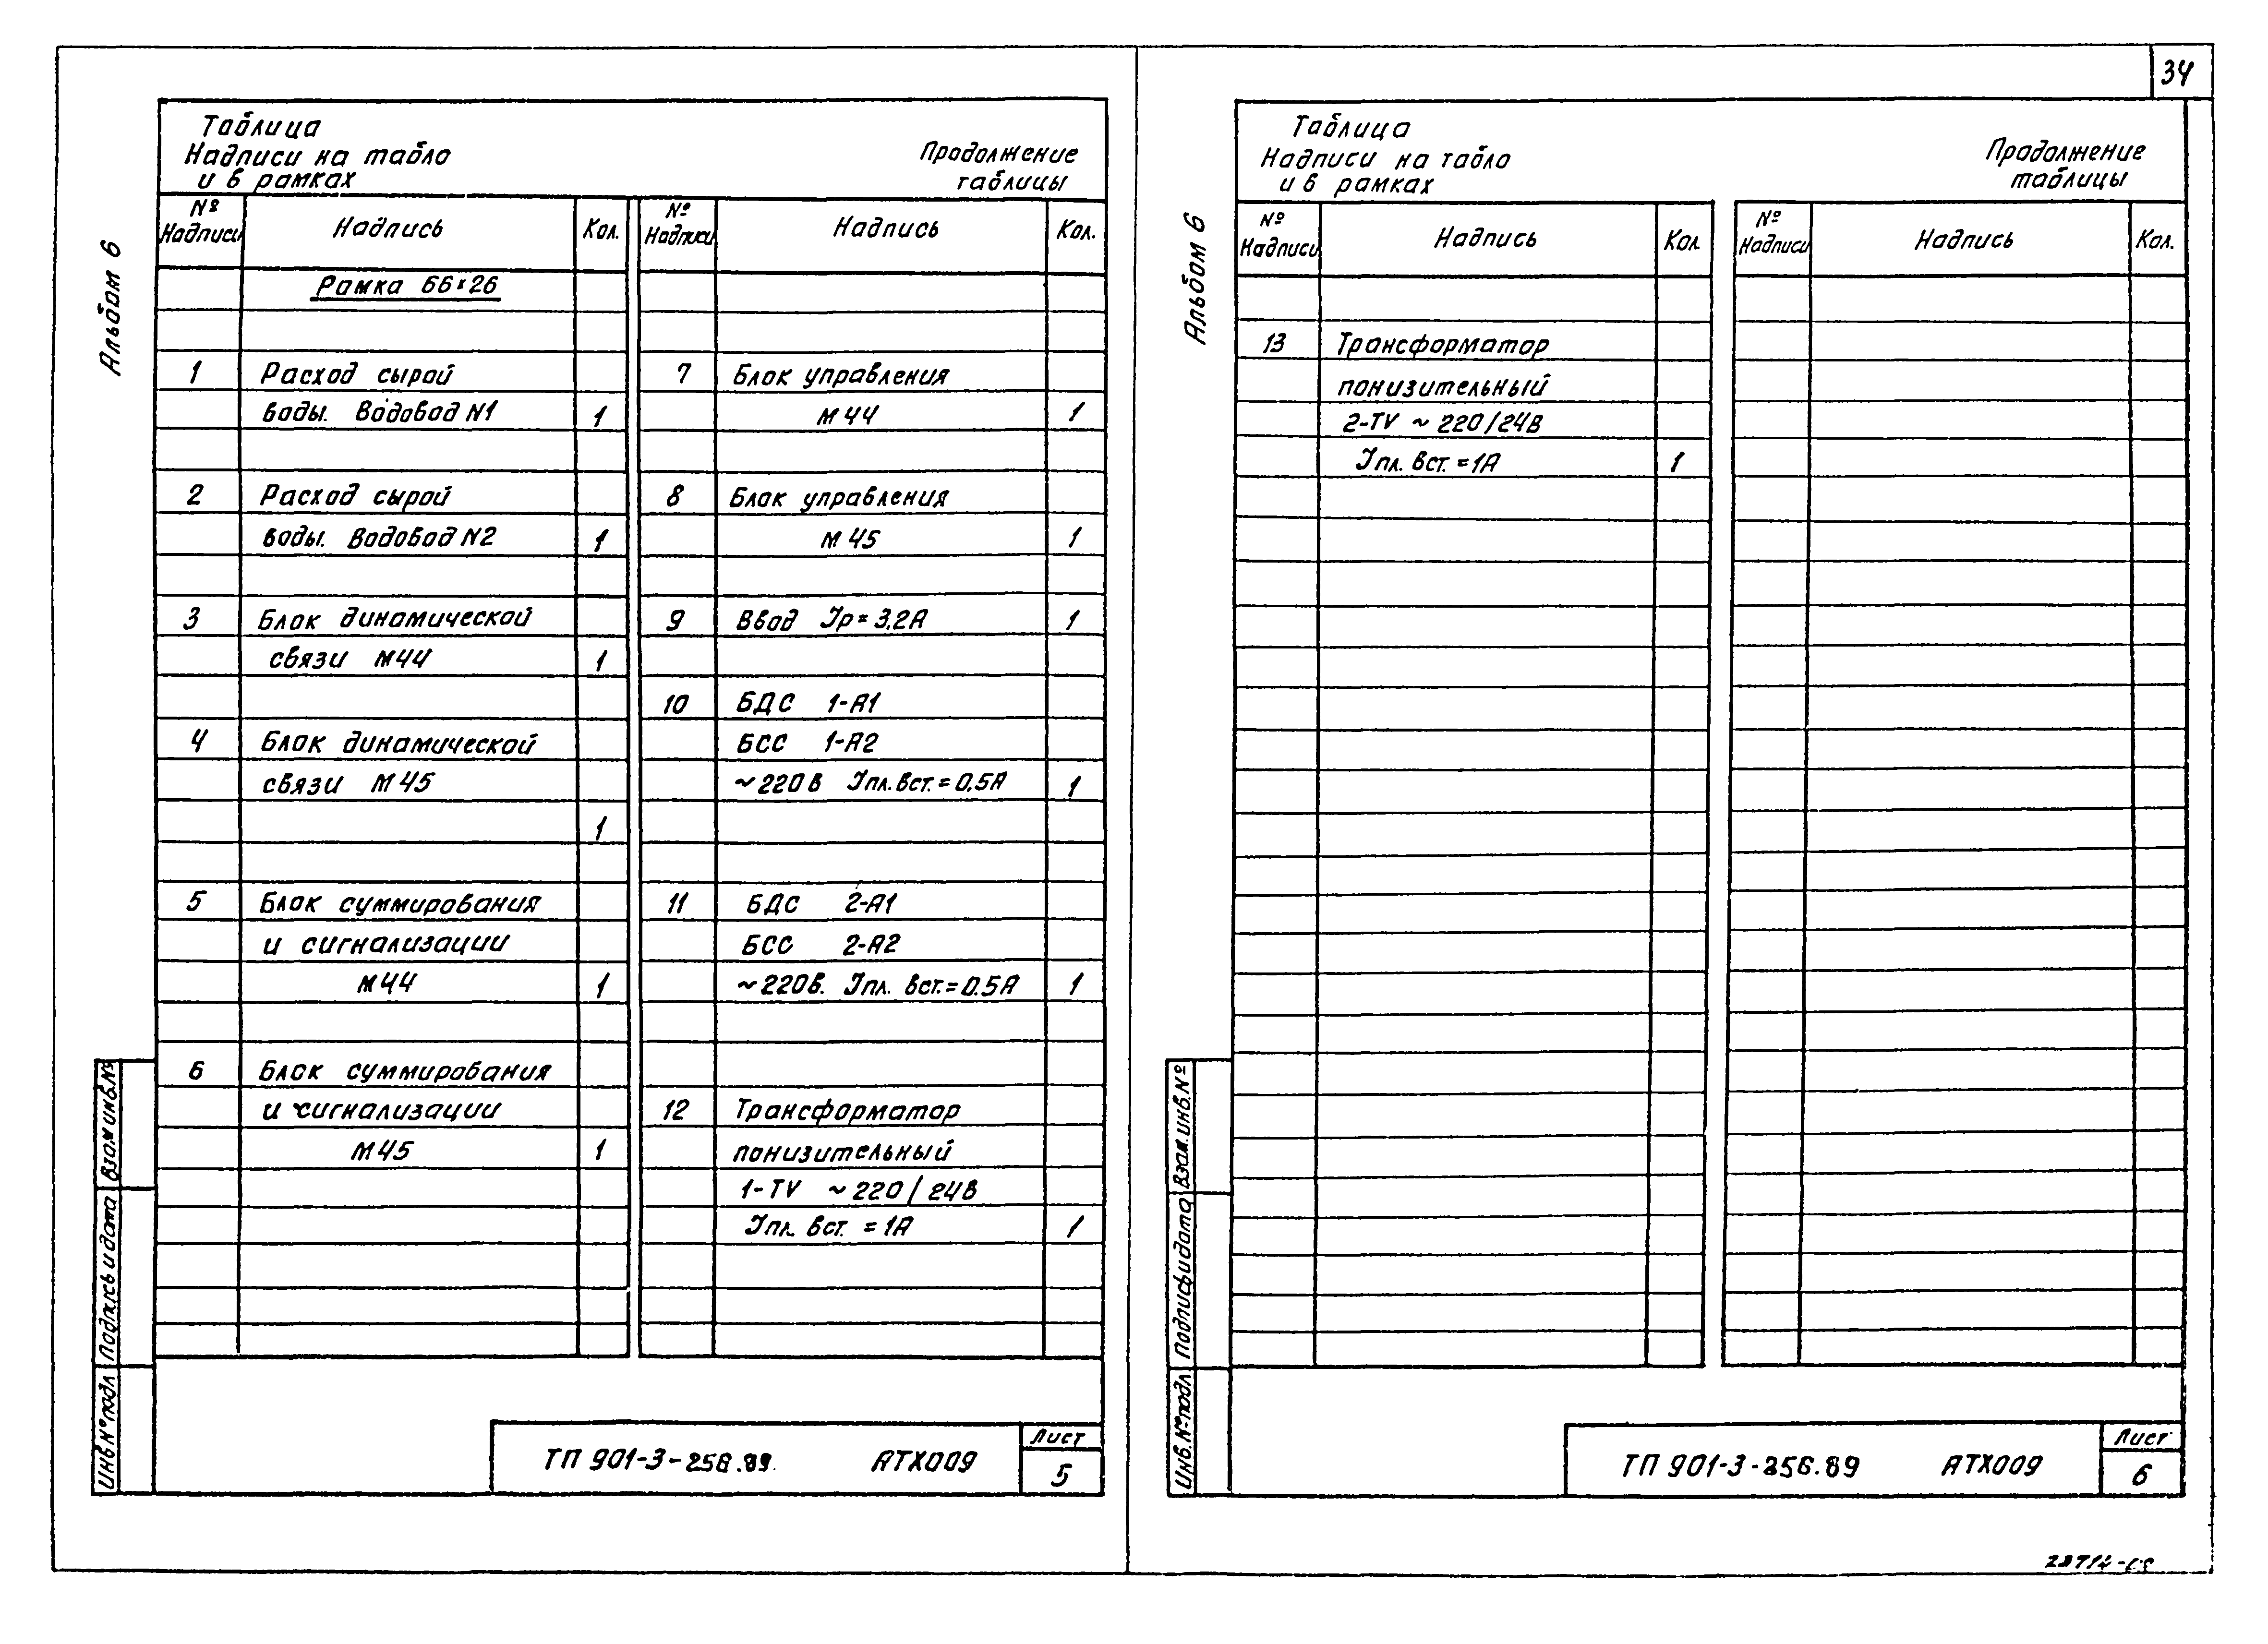 34
Альбом 6
Таблица
Надписи на табло
и в рамках
Продолжение
таблицы
№ Надписи Надпись Кол. № Надписи Надпись Кол.
Рамка 66×26
1 Расход сырой
воды. Водовод N1 1
2 Расход сырой
воды. Водовод N2 1
3 Блок динамической
связи М44 1
4 Блок динамической
связи М45
1
5 Блок суммирования
и сигнализации
М44 1
6 Блок суммирования
и сигнализации
М45 1
7 Блок управления
М44 1
8 Блок управления
М45 1
9 Ввод Iр = 3.2А 1
10 БДС 1-А1
БСС 1-А2
~220в Iпл. вст. = 0,5А 1
11 БДС 2-А1
БСС 2-А2
~220в. Iпл. вст. = 0.5А 1
12 Трансформатор
понизительный
1-TV ~220/24в
Iпл. вст. = 1А 1
Взам инв. №
Подпись и дата
Инв № подл
ТП 901-3-256.89. АТХ009
Лист
5
Альбом 6
Таблица
Надписи на табло
и в рамках
Продолжение
таблицы
№ Надписи Надпись Кол № Надписи Надпись Кол.
13 Трансформатор
понизительный
2-TV ~220/24в
Iпл. вст. = 1А 1
Взам. инв. №
Подпись и дата
Инв. № подл
ТП 901-3-256.89 АТХ009
Лист
6